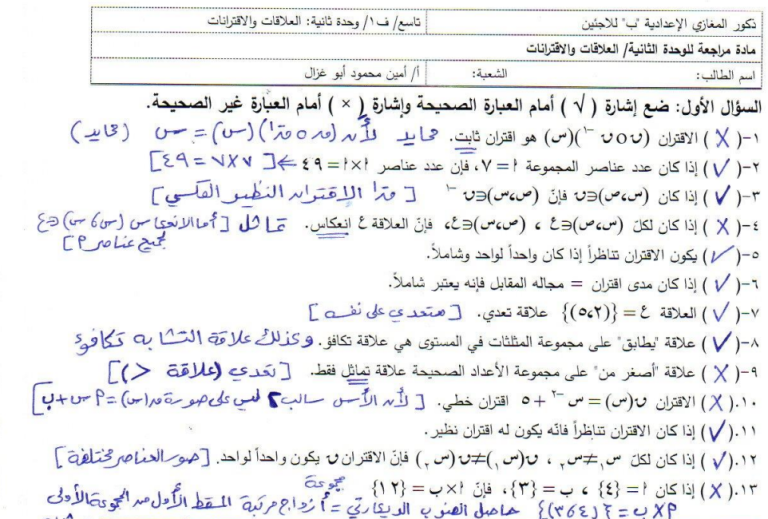 ذكور المغازي الإعدادية "ب" للاجئين
تاسع/ ف١/ وحدة ثانية: العلاقات والاقترانات
مادة مراجعة للوحدة الثانية/ العلاقات والاقترانات
اسم الطالب: الشعبة: أ/ أمين محمود أبو غزال
السؤال الأول: ضع إشارة ( √ ) أمام العبارة الصحيحة وإشارة ( × ) أمام العبارة غير الصحيحة.
١-( X ) الاقتران (ن o ن⁻¹)(س) هو اقتران ثابت. محايد لأن (ق o ق⁻¹)(س) = س (محايد)
٢-( √ ) إذا كان عدد عناصر المجموعة أ = ٧، فإن عدد عناصر أ×أ = ٤٩ ← [ ٧×٧ = ٤٩ ]
٣-( √ ) إذا كان (س،ص)∈ن فإنّ (ص،س)∈ن⁻¹ [ هذا الاقتران النظير العكسي ]
٤-( X ) إذا كان لكلّ (س،ص)∈ع ، (ص،س)∈ع، فإنّ العلاقة ع انعكاس. تماثل [ أما الانعكاس (س،س)∈ع
لجميع عناصر أ ]
٥-( √ ) يكون الاقتران تناظراً إذا كان واحداً لواحد وشاملاً.
٦-( √ ) إذا كان مدى اقتران = مجاله المقابل فإنه يعتبر شاملاً.
٧-( √ ) العلاقة ع = {(٥،٢)} علاقة تعدي. [ متعدي على نفسه ]
٨-( √ ) علاقة "يطابق" على مجموعة المثلثات في المستوى هي علاقة تكافؤ. وكذلك علاقة التشابه تكافؤ
٩-( X ) علاقة "أصغر من" على مجموعة الأعداد الصحيحة علاقة تماثل فقط. [ تعدي (علاقة <) ]
١٠.( X ) الاقتران ن(س) = س⁻² + ٥ اقتران خطي. [ لأن الأس سالب ٢ ليس على صورة ق(س) = أس + ب ]
١١.( √ ) إذا كان الاقتران تناظراً فانّه يكون له اقتران نظير.
١٢.( √ ) إذا كان لكلّ س₁≠س₂ ، ن(س₁)≠ن(س₂) فإنّ الاقتران ن يكون واحداً لواحد. [ صور العناصر مختلفة ]
١٣.( X ) إذا كان أ = {٤} ، ب = {٣}، فإنّ أ×ب = {١٢} مجموعة
أ×ب = {(٤،٣)} حاصل الضرب الديكارتي = أزواج مرتبة المسقط الأول من المجموعة الأولى